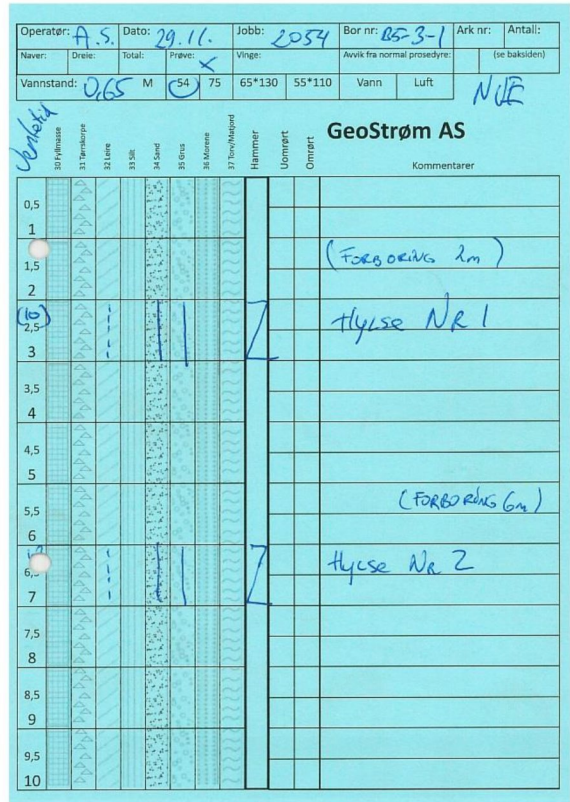 Operatør: A.S. Dato: 29.11. Jobb: 2054 Bor nr: B5-3-1 Ark nr: Antall:
Naver: Dreie: Total: Prøve: X Vinge: Avvik fra normal prosedyre: (se baksiden)
Vannstand: 0,65 M 54 75 65*130 55*110 Vann Luft NVE
Ventetid
30 Fyllmasse 31 Tørrskorpe 32 Leire 33 Silt 34 Sand 35 Grus 36 Morene 37 Torv/Matjord Hammer Uomrørt Omrørt
GeoStrøm AS
Kommentarer
0,5
1
(FORBORING 2m)
1,5
2
(10)
2,5 Hylse NR 1
3
3,5
4
4,5
5
(FORBORING 6m)
5,5
6
6,5 Hylse NR 2
7
7,5
8
8,5
9
9,5
10